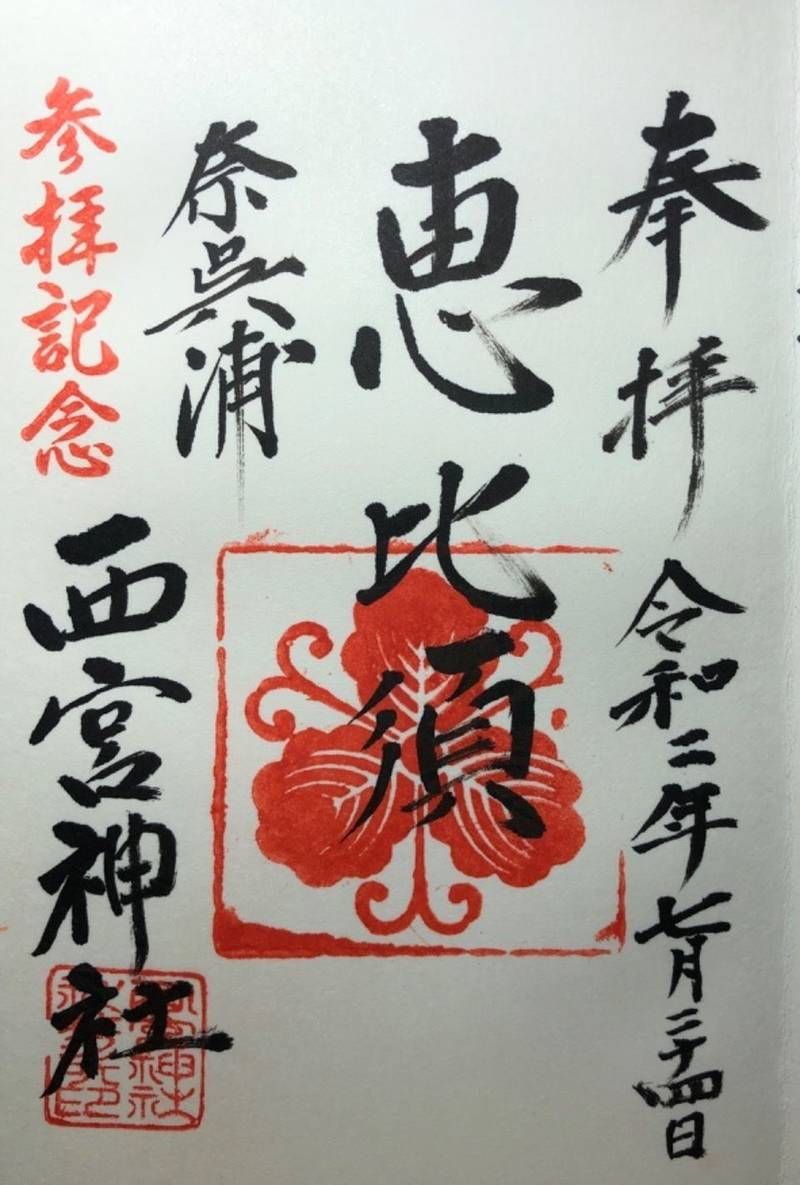 奉拝 令和二年七月二十四日
恵比須
奈呉浦
参拝記念
西宮神社